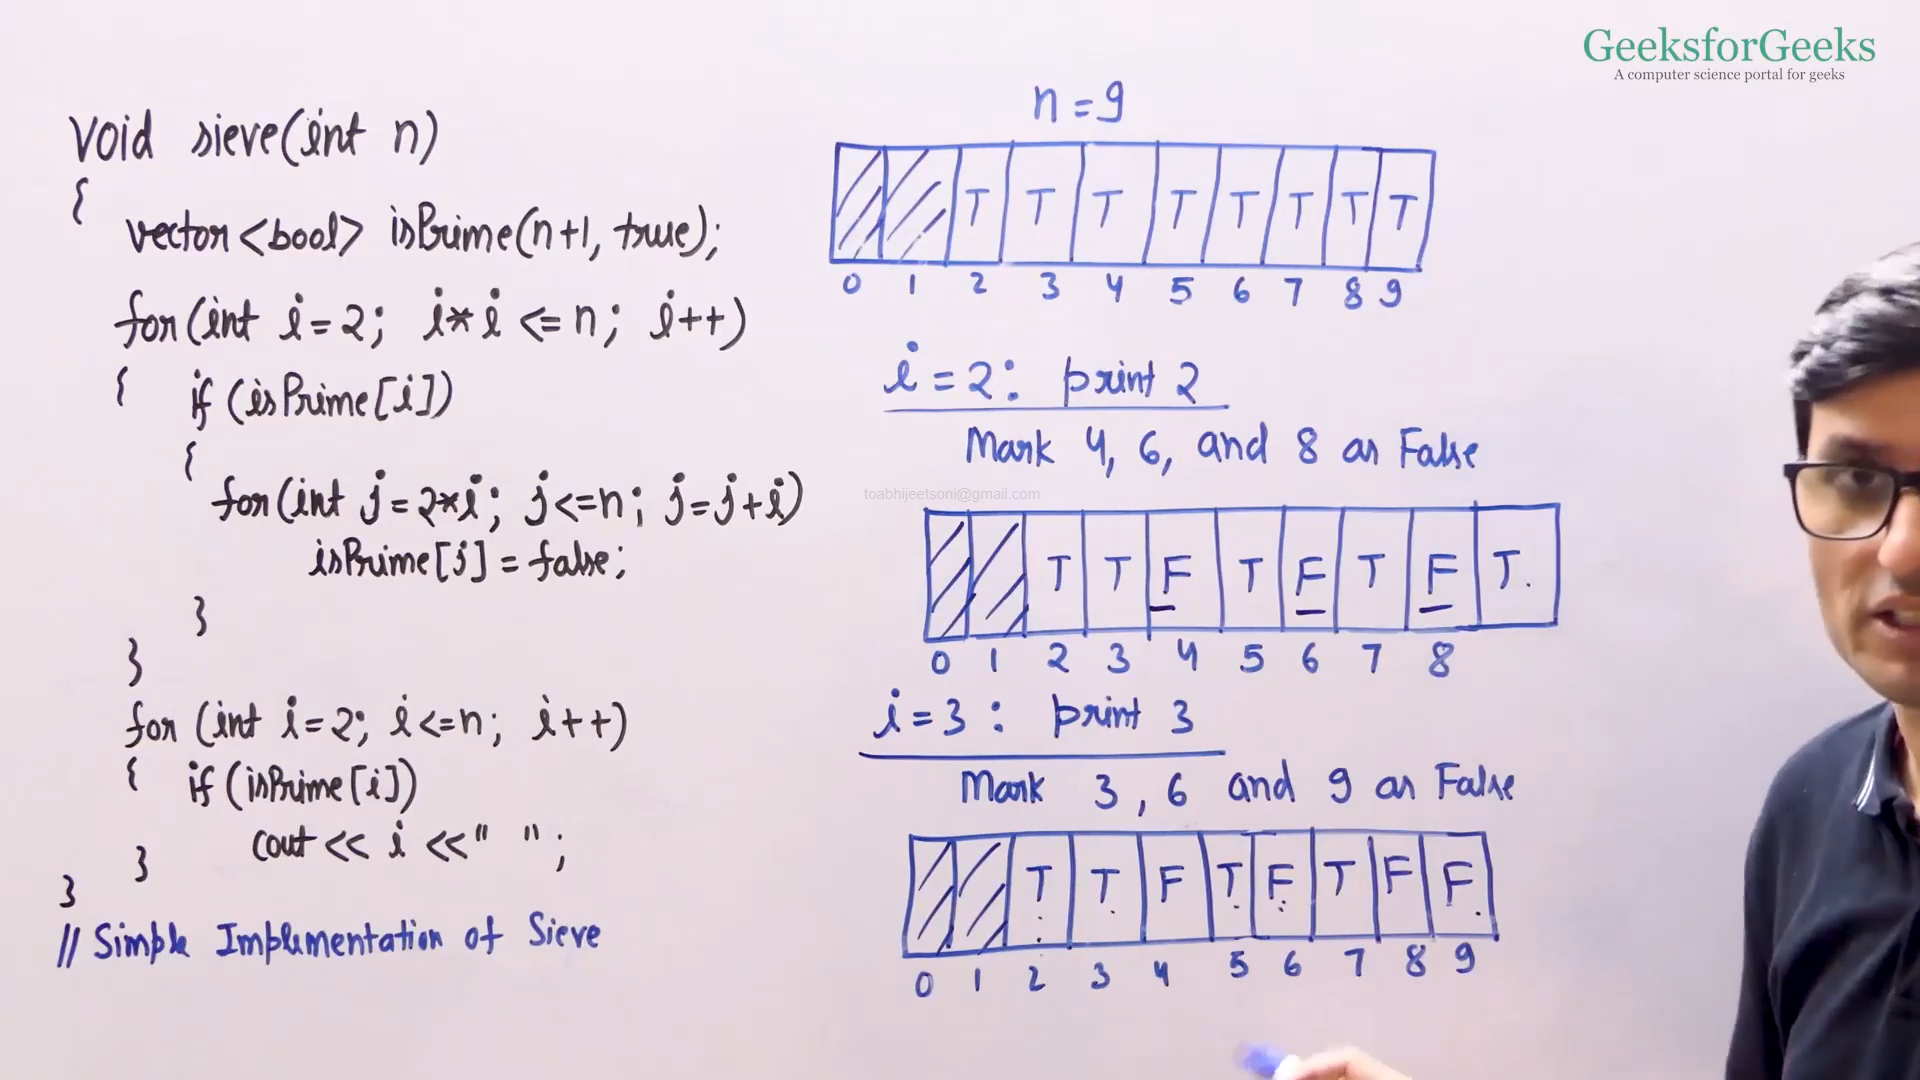 GeeksforGeeks
A computer science portal for geeks
void sieve(int n)
{
vector<bool> isPrime(n+1, true);
for(int i=2; i*i <=n; i++)
{ if (isPrime[i])
{
for(int j=2*i; j<=n; j=j+i)
isPrime[j] = false;
}
}
for (int i=2; i<=n; i++)
{ if (isPrime[i])
cout << i <<" ";
}
}
// Simple Implementation of Sieve
n=9
T T T T T T T T
0 1 2 3 4 5 6 7 8 9
i=2: print 2
Mark 4, 6, and 8 as False
toabhijeetsoni@gmail.com
T T F T F T F T.
0 1 2 3 4 5 6 7 8
i=3: print 3
Mark 3, 6 and 9 as False
T T F T F T F F
0 1 2 3 4 5 6 7 8 9